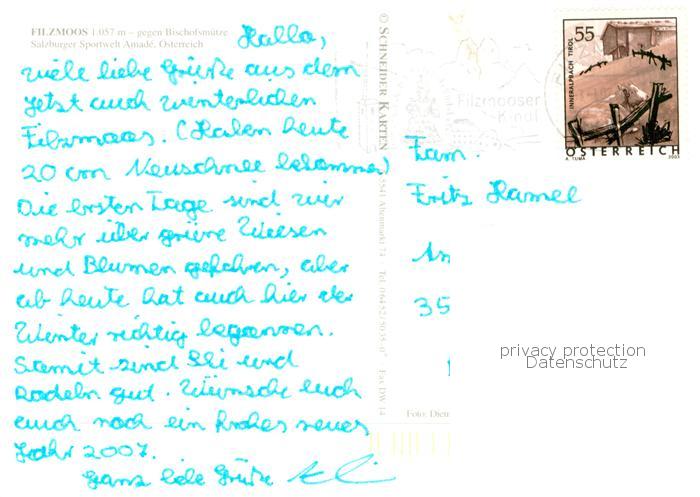 FILZMOOS 1.057 m – gegen Bischofsmütze
Salzburger Sportwelt Amadé, Österreich
Hallo,
viele liebe Grüße aus dem
jetzt auch winterlichen
Filzmoos. (Haben heute
20 cm Neuschnee bekommen)
Die ersten Tage sind wir
mehr über grüne Wiesen
und Blumen gefahren, aber
ab heute hat auch hier der
Winter richtig begonnen.
Somit sind Ski und
Rodeln gut. Wünsche euch
auch noch ein frohes neues
Jahr 2007.
Ganz liebe Grüße
© SCHNEIDER KARTEN 5541 Altenmarkt 74 Tel. 06452/5035-0 Fax DW 14
Filzmooser
Kindl
55
INNERALPBACH TIROL
ÖSTERREICH
A. TUMA 2003
Fam.
Fritz Hamel
An
35
privacy protection
Datenschutz
Foto: Diem